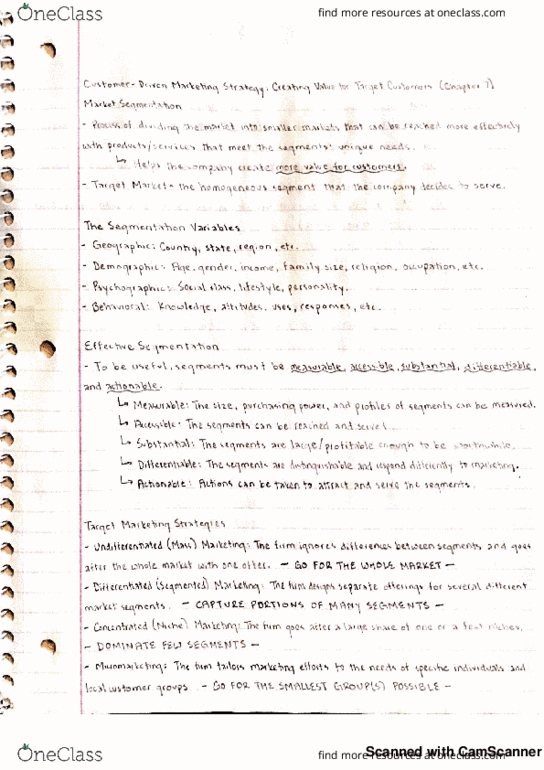 OneClass
find more resources at oneclass.com
Customer-Driven Marketing Strategy: Creating Value for Target Customers (Chapter 7)
Market Segmentation
- Process of dividing the market into smaller markets that can be reached more effectively
with products/services that meet the segments' unique needs.
↳ Helps the company create more value for customers.
- Target Market - the homogeneous segment that the company decides to serve.
The Segmentation Variables
- Geographic: Country, state, region, etc.
- Demographic: Age, gender, income, family size, religion, occupation, etc.
- Psychographic: Social class, lifestyle, personality.
- Behavioral: Knowledge, attitudes, uses, responses, etc.
Effective Segmentation
- To be useful, segments must be measurable, accessible, substantial, differentiable,
and actionable.
↳ Measurable: The size, purchasing power, and profiles of segments can be measured.
↳ Accessible: The segments can be reached and served.
↳ Substantial: The segments are large/profitable enough to be worthwhile.
↳ Differentiable: The segments are distinguishable and respond differently to marketing.
↳ Actionable: Actions can be taken to attract and serve the segments.
Target Marketing Strategies
- Undifferentiated (Mass) Marketing: The firm ignores differences between segments and goes
after the whole market with one offer. - GO FOR THE WHOLE MARKET -
- Differentiated (Segmented) Marketing: The firm designs separate offerings for several different
market segments. - CAPTURE PORTIONS OF MANY SEGMENTS -
- Concentrated (Niche) Marketing: The firm goes after a large share of one or a few niches.
- DOMINATE FEW SEGMENTS -
- Micromarketing: The firm tailors marketing efforts to the needs of specific individuals and
local customer groups. - GO FOR THE SMALLEST GROUP(S) POSSIBLE -
OneClass
find more resources at oneclass.com
Scanned with CamScanner